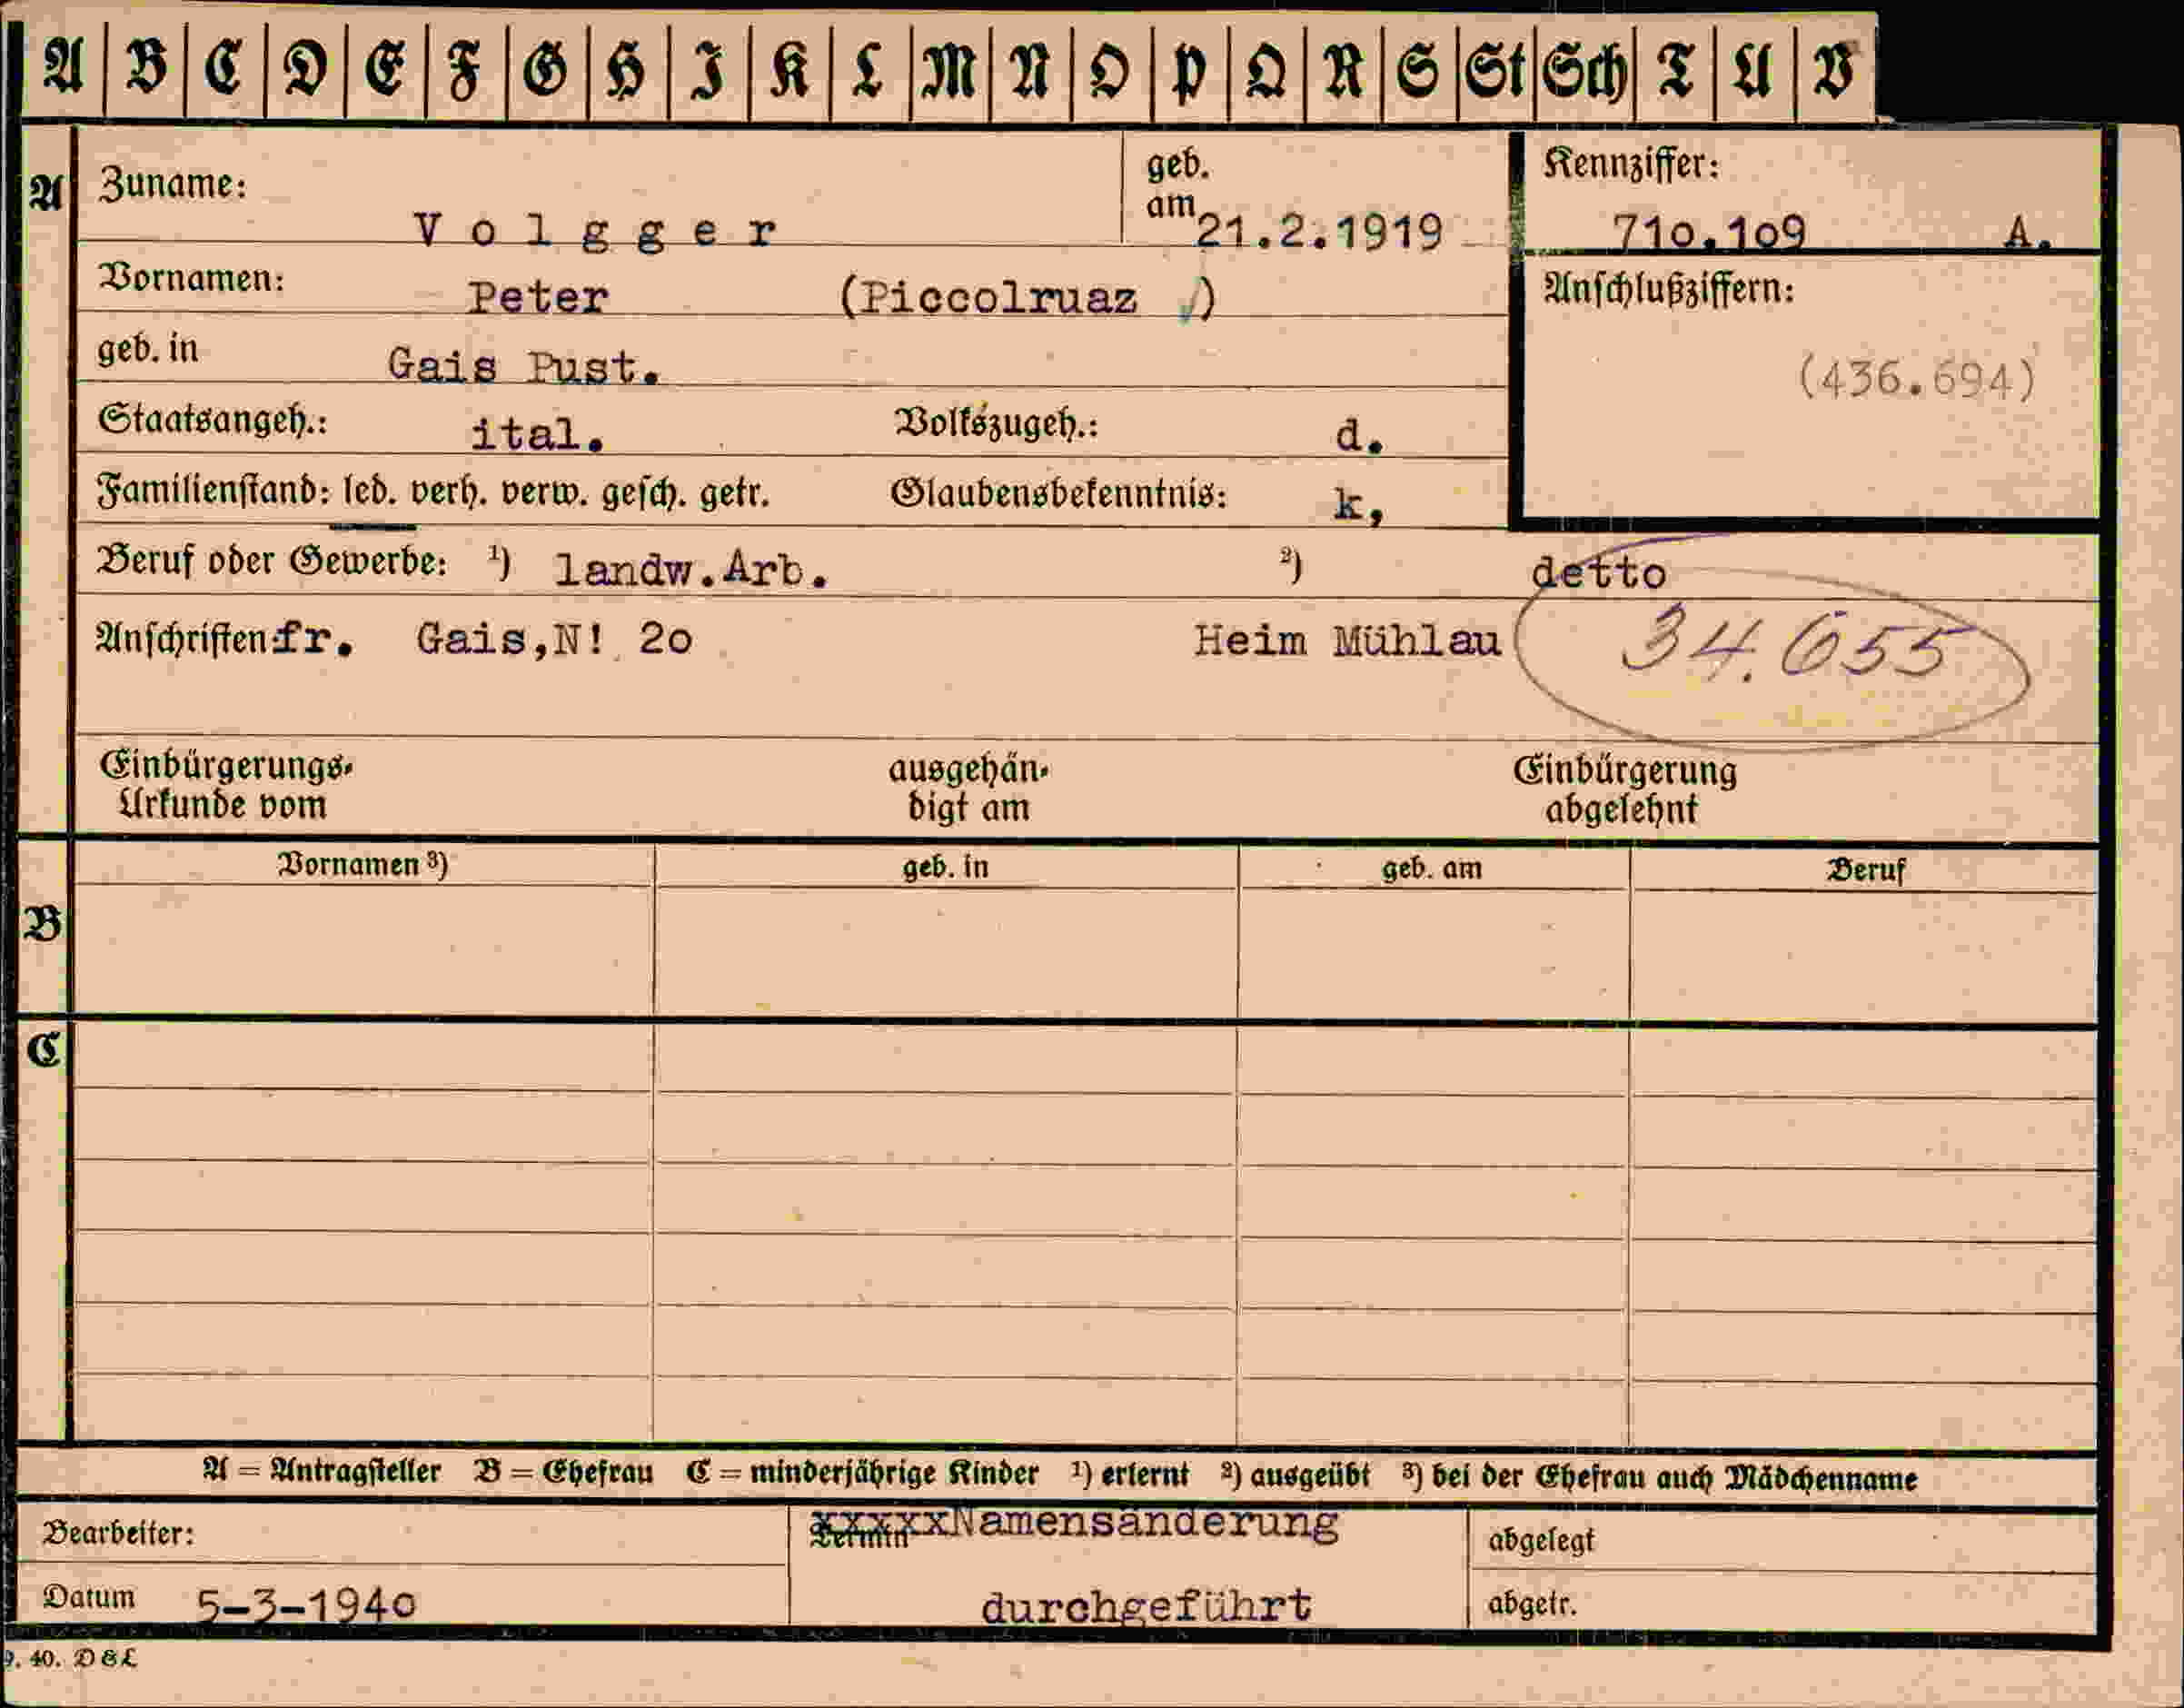 A B C D E F G H I K L M N O P Q R S St Sch T U V
A Zuname: Volgger geb. am 21.2.1919 Kennziffer: 710.109 A.
Vornamen: Peter (Piccolruaz ) Anschlußziffern:
geb. in Gais Pust. (436.694)
Staatsangeh.: ital. Volkszugeh.: d.
Familienstand: led. verh. verw. gesch. getr. Glaubensbekenntnis: k,
Beruf oder Gewerbe: ¹) landw.Arb. ²) detto
Anschriften fr. Gais,N! 20 Heim Mühlau 34.655
Einbürgerungs- ausgehän- Einbürgerung
Urkunde vom digt am abgelehnt
Vornamen ³) geb. in geb. am Beruf
B
C
A = Antragsteller B = Ehefrau C = minderjährige Kinder ¹) erlernt ²) ausgeübt ³) bei der Ehefrau auch Mädchenname
Bearbeiter: Termin xxxxxNamensänderung abgelegt
Datum 5-3-1940 durchgeführt abgetr.
9. 40. D & L